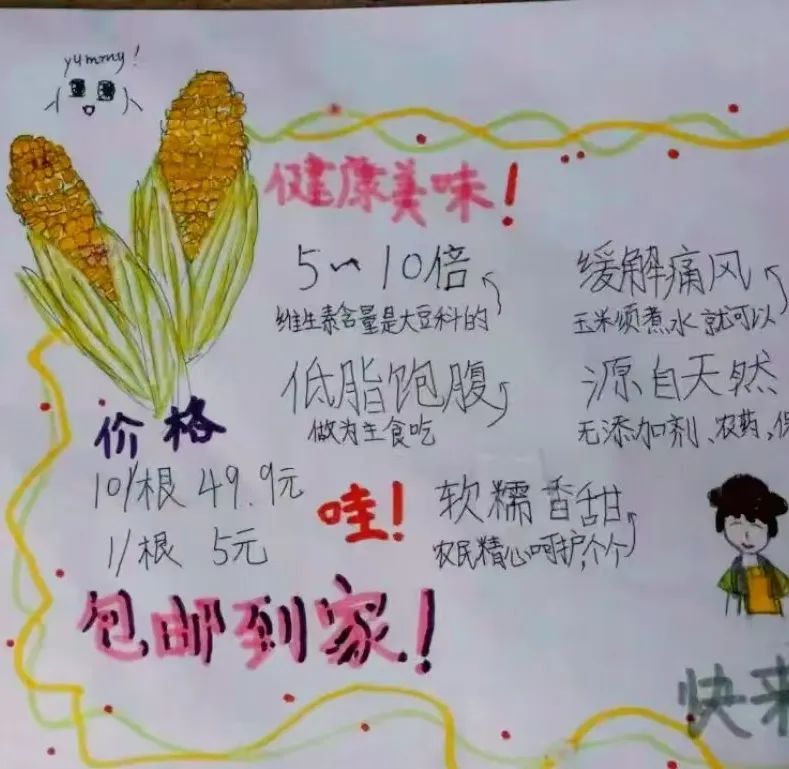 yummy!
健康美味!
5~10倍
维生素含量是大豆科的
缓解痛风
玉米须煮水就可以
低脂饱腹
做为主食吃
源自天然
无添加剂、农药、保
价格
10/根 49.9元
1/根 5元
哇!
软糯香甜
农民精心呵护,个个
包邮到家!
快来